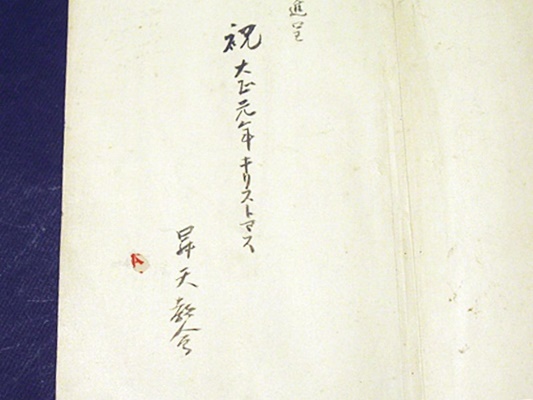 進呈
祝 大正元年 キリストマス
昇天教会